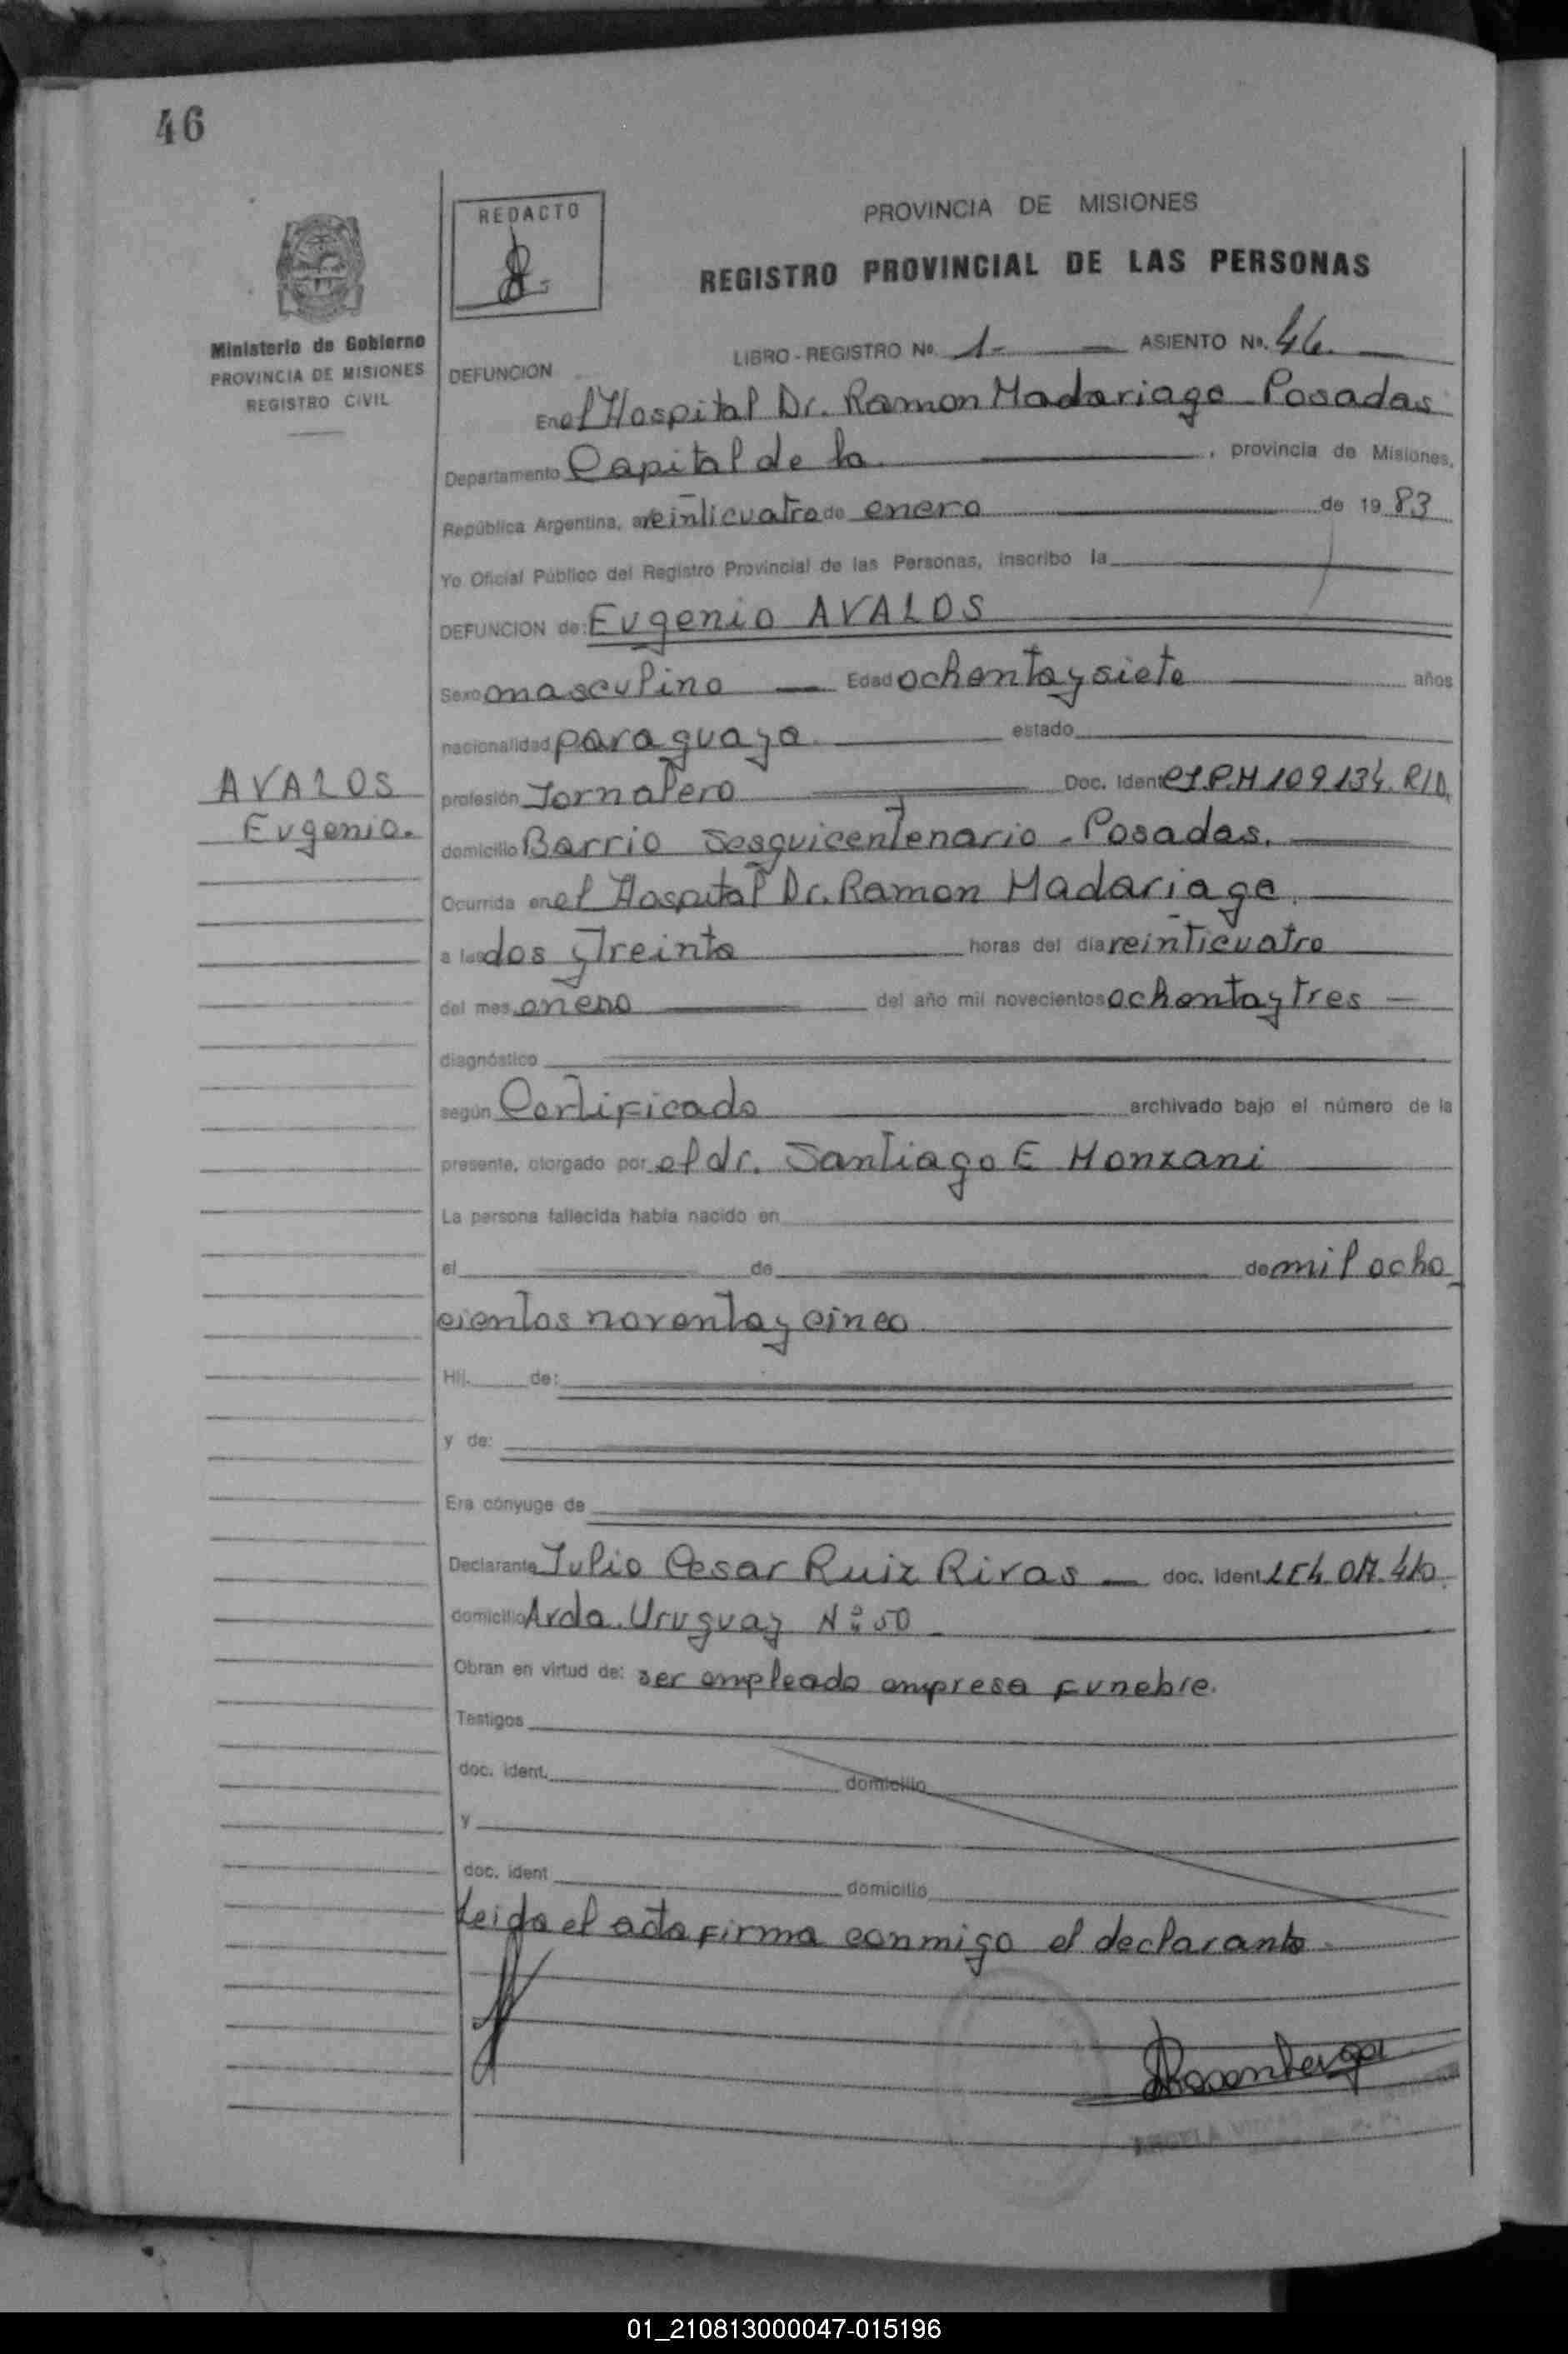 46
REDACTO
PROVINCIA DE MISIONES
REGISTRO PROVINCIAL DE LAS PERSONAS
Ministerio de Gobierno
PROVINCIA DE MISIONES
REGISTRO CIVIL
LIBRO - REGISTRO Nº. 1- ASIENTO Nº. 46.
DEFUNCION
En el Hospital Dr. Ramon Madariaga - Posadas
Departamento Capital de la , provincia de Misiones,
República Argentina, a veinticuatro de enero de 19 83
Yo Oficial Público del Registro Provincial de las Personas, inscribo la
DEFUNCION de: Eugenio AVALOS
Sexo masculino Edad ochenta y siete años
nacionalidad paraguaya estado
AVALOS
Eugenio.
profesión Jornalero Doc. Ident
domicilio Barrio Sesquicentenario - Posadas.
Ocurrida en el Hospital Dr. Ramon Madariaga.
a las dos y treinta horas del día veinticuatro
del mes enero del año mil novecientos ochenta y tres
diagnóstico
según Certificado archivado bajo el número de la
presente, otorgado por el dr. Santiago E Monzani
La persona fallecida había nacido en
el de de mil ocho
cientos noventa y cinco
Hij. de:
y de:
Era cónyuge de
Declarante Julio Cesar Ruiz Rivas doc. Ident
domicilio Avda. Uruguay Nº 50
Obran en virtud de: ser empleado empresa funebre.
Testigos
doc. ident. domicilio
y
doc. ident domicilio
Leida el acta firma conmigo el declarante
01_210813000047-015196